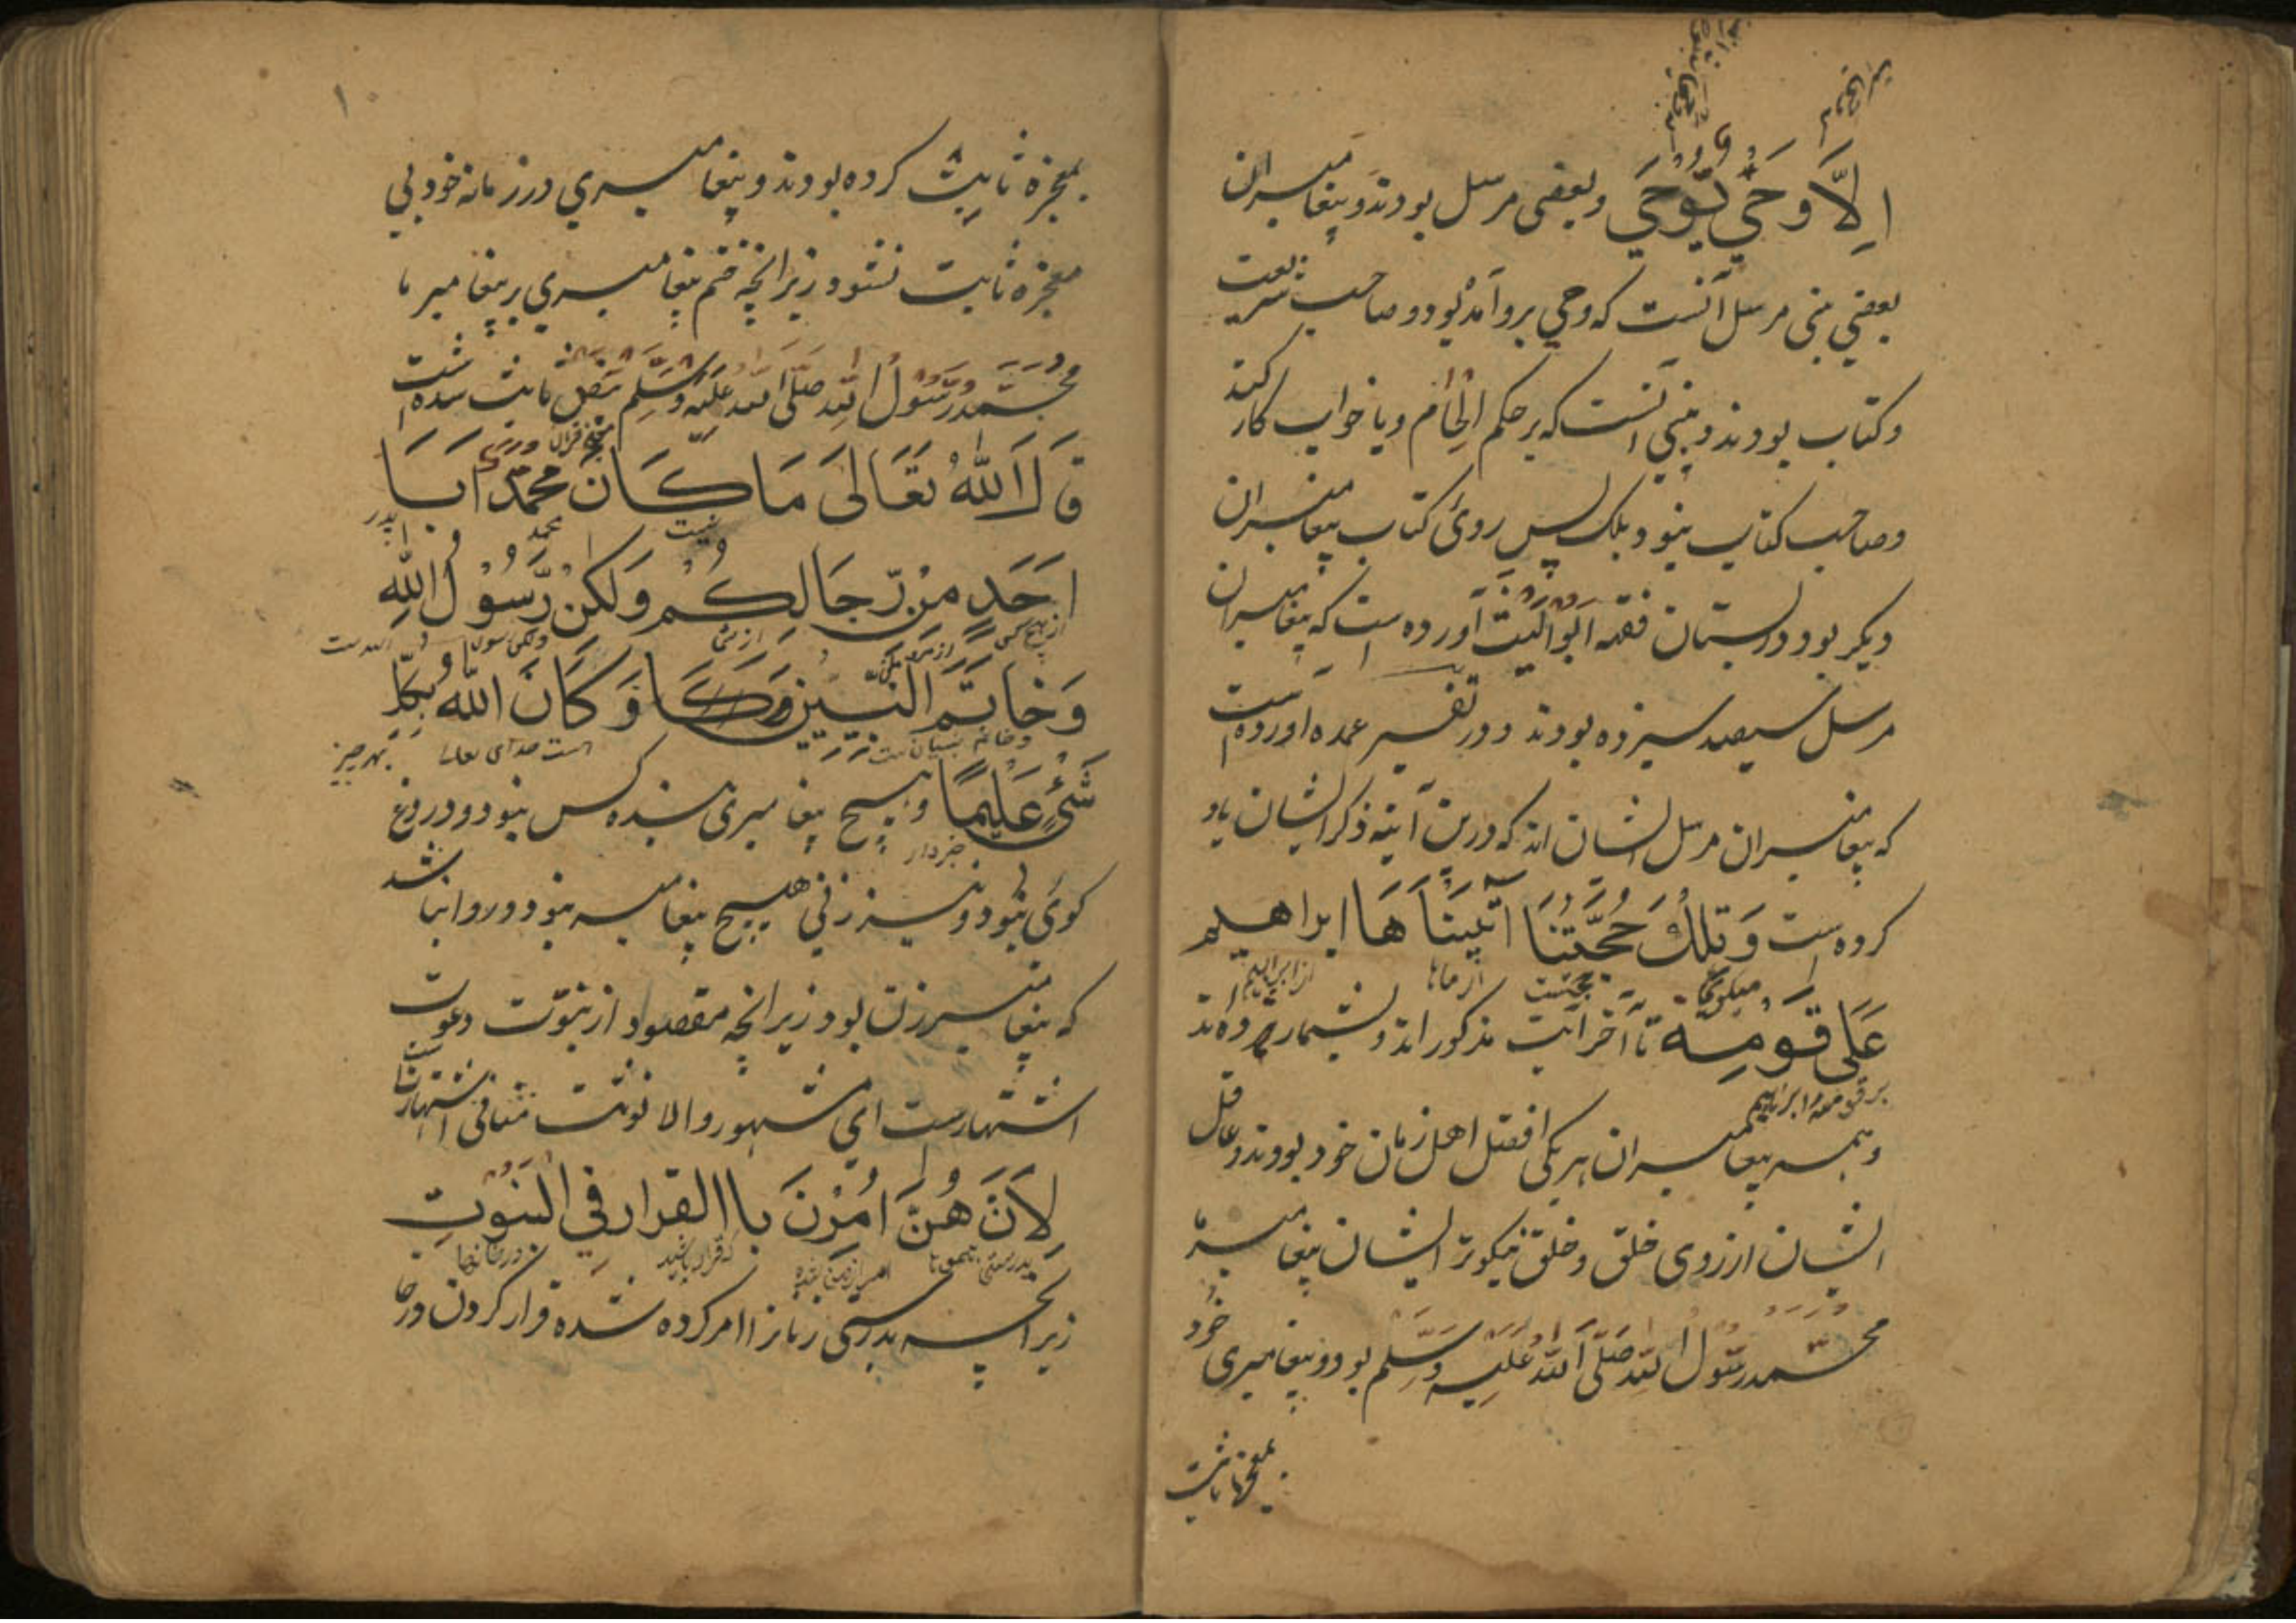 اِلَّا وَحْيٌ يُّوْحٰي وبعضی مرسل بودند و پیغامبران
بعضي نبی مرسل آنست که وحي برو آمده بود و صاحب شریعت
وکتاب بودند و نبي آنست که بر حکم الهام ویا خواب کار کند
وصاحب کتاب نبود بلک پس روئ کتاب پیغامبران
دیکر بود و در بستان فقه ابواللیث آورده است که پیغامبران
مرسل سیصد سیزده بودند و در تفسیر عمده اورده است
که پیغامبران مرسل ایشان اند که درین آیته ذکر ایشان یاد
کرده است وَتِلْكَ حُجَّتُنَا اٰتَيْنَاهَا ابراهیم
عَلٰى قَوْمِهٖ تا آخر آیت مذکور اند و بشمار هژده اند
برقوم مهتر ابراهیم
وهمه پیغامبران هر یکی افضل اهل زمان خود بودند و عاقل
ایشان از روی خلق و خلق نیکوتر ایشان پیغامبر ما
محمد رسول الله صلى الله عليه وسلم بود و پیغامبری خود
بمعجزه ثابت
۱۰
بمعجزه ثابت کرده بودند و پیغامبري در زمانه خود بي
معجزه ثابت نشود زیرانچه ختم پیغامبري بر پیغامبر ما
محمد رسول الله صلى الله عليه وسلم بنص ثابت شده است
قَالَ اللهُ تَعَالٰى مَا كَانَ مُحَمَّدٌ اَبَا
نیست محمد پدر
اَحَدٍ مِّنْ رِّجَالِكُمْ وَلٰكِنْ رَّسُوْلَ اللهِ
وَخَاتَمَ النَّبِيّٖنَ وَكَا وَكَانَ اللهُ بِكُلِّ
است خدای تعالی بهر چیز
شَيْءٍ عَلِيْمًا وهیچ پیغامبری بنده کس نبود و دروغ
خبردار
کوی نبود ونیز زني هیچ پیغامبر نبود و روا نباشد
که پیغامبر زن بود زیرانچه مقصود از نبوت دعوت
اشتهارست اي مشهور والا نوثت منافی اشتهارست
لِاَنَّ هُنَّ اُمِرْنَ باالقرار فِي الْبُيُوْتِ
زیرانچه بدرستی زنانرا امر کرده شده قرار کردن در خا